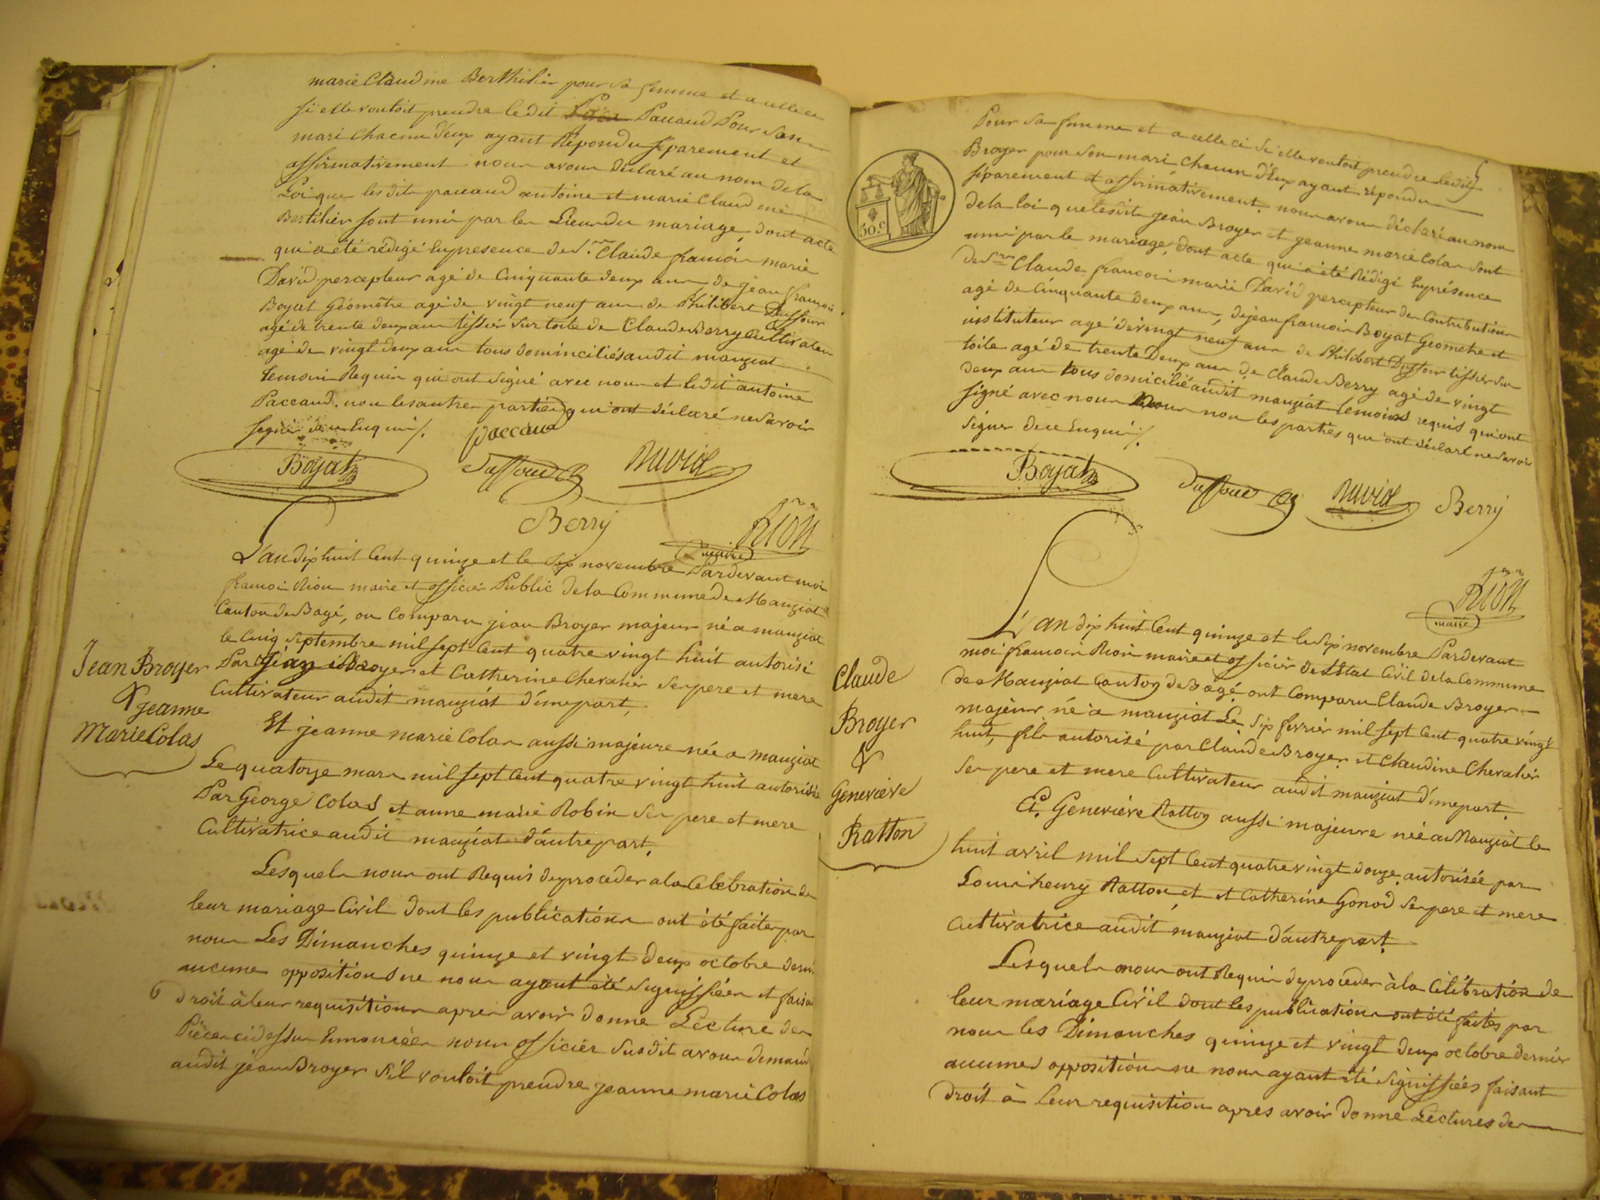 marie Claudine Berthilier pour sa femme et a celle ci
si elle vouloit prendre ledit Paccaud Pour Son
mari chacun d'eux ayant Répondu séparement et
affirmativement nous avons déclaré au nom de la
Loi que lesdits paccaud antoine et marie Claudine
Berthilier sont unis par les Liens du mariage dont acte
qui a été rédigé En presence de Sr. Claude francois marie
David percepteur agé de Cinquante deux ans, de jean francois
Boyat Géomètre agé de vingt neuf ans de Philibert Duffour
agé de trente deux ans tissier Sur toile de Claude Berry Cultivateur
agé de vingt deux ans tous dominciliés audit mauziat
temoins Requis qui ont Signé avec nous et ledit antoine
Paccaud, non les autres parties qui ont déclaré ne Savoir
Signer de ce Enquis
paccaud
Boyat Duffour David
Berry RION
maire
L'an dix huit Cent quinze et le Six novembre Pardevant moi
francois Rion maire et officier Public de la Commune de Mauziat
Canton de Bagé, ou Comparu jean Broyer majeur né a mauziat
le Cinq Septembre mil sept Cent quatre vingt huit autorisé
Par jean Broyer et Catherine Chevalier Ses pere et mere
Cultivateur audit mauziat d'une part,
Jean Broyer
&
jeanne
Marie Colas
Et jeanne marie Colas aussi majeure née a mauziat
Le quatorze mars mil sept Cent quatre vingt huit autorisée
Par George Colas et anne marie Robin Ses pere et mere
Cultivatrice audit mauziat d'autre part,
Lesquels nous ont Requis de proceder a la Celebration de
leur mariage Civil dont les publications ont été faites par
nous Les Dimanches quinze et vingt deux octobre dernier
aucune opposition ne nous ayant été Signiffiées et faisant
droit à leur requisition apres avoir donné Lecture des
Pièces cidessus Enoncées nous officier Susdit avons demandé
audit jean Broyer S'il vouloit prendre jeanne marie Colas
50. C
Pour Sa femme et a celle ci Si elle vouloit prendre ledit
Broyer pour Son mari, chacun d'Eux ayant répondu
séparement et affirmativement, nous avons déclaré au nom
de la loi que lesdits jean Broyer et jeanne marie Colas Sont
unis par le mariage, dont acte qui a été Rédigé En présence
de Sr Claude francois marie David percepteur des Contributions
agé de Cinquante deux ans, de jean francois Boyat Géometre et
instituteur agé de vingt neuf ans de Philibert Duffour tissier Sur
toile agé de trente Deux ans, de Claude Berry agé de vingt
deux ans tous domiciliés audit mauziat temoins requis qui ont
signé avec nous non les parties qui ont déclaré ne Savoir
Signer de ce Enquis
Boyat Duffour David Berry
RION
maire
L'an dix huit Cent quinze et le Six novembre Pardevant
moi francois Rion maire et officier de l'Etat Civil de la Commune
de Mauziat Canton de Bagé, ont Comparu Claude Broyer
majeur né a mauziat Le Six fevrier mil sept Cent quatre vingt
huit, fils autorisé par Claude Broyer et Claudine Chevalier
Ses pere et mere Cultivateur audit mauziat d'une part.
Claude
Broyer
&
Genevieve
Ratton
Et Genevieve Ratton aussi majeure née a Mauziat le
huit avril mil sept Cent quatre vingt douze, autorisée par
Louis henry Ratton et et Catherine Gonod Ses pere et mere
Cultivatrice audit mauziat d'autre part.
Lesquels nous ont Requis de proceder à la Célébration de
leur mariage Civil dont les publications ont été faites par
nous les Dimanches quinze et vingt deux octobre dernier
aucunes opposition ne nous ayant été Signiffiées faisant
droit à leur requisition après avoir donné Lectures des